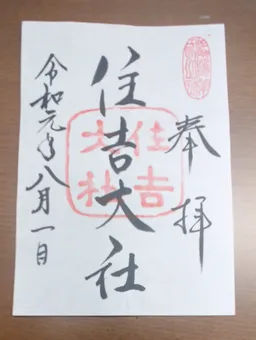 奉拝
住吉大社
住吉大社
令和元年八月一日